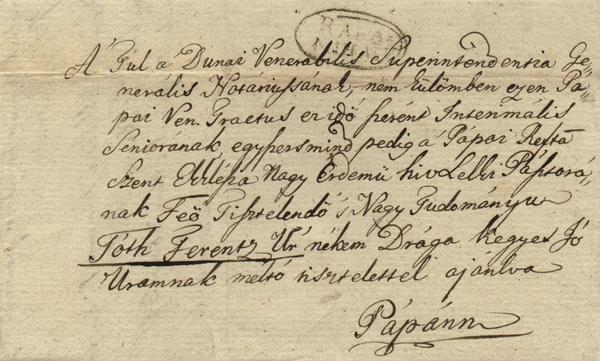 A' Túl a Dunai Venerabilis Superintendentia Ge„
nerális Notáriussának, nem külömben ezen Pá„
pai Ven. Tractus ez idő szerént Interimális
Seniorának, egyszersmind pedig a Pápai Refta
Szent Ekklésia Nagy Érdemű hiv Lelki Pásstorá„
nak Feő Tisztelendő s Nagy Tudományu
Tóth Ferentz Úr nékem Drága kegyes Jó
Uramnak méltó tisztelettel ajánlva
Pápánn